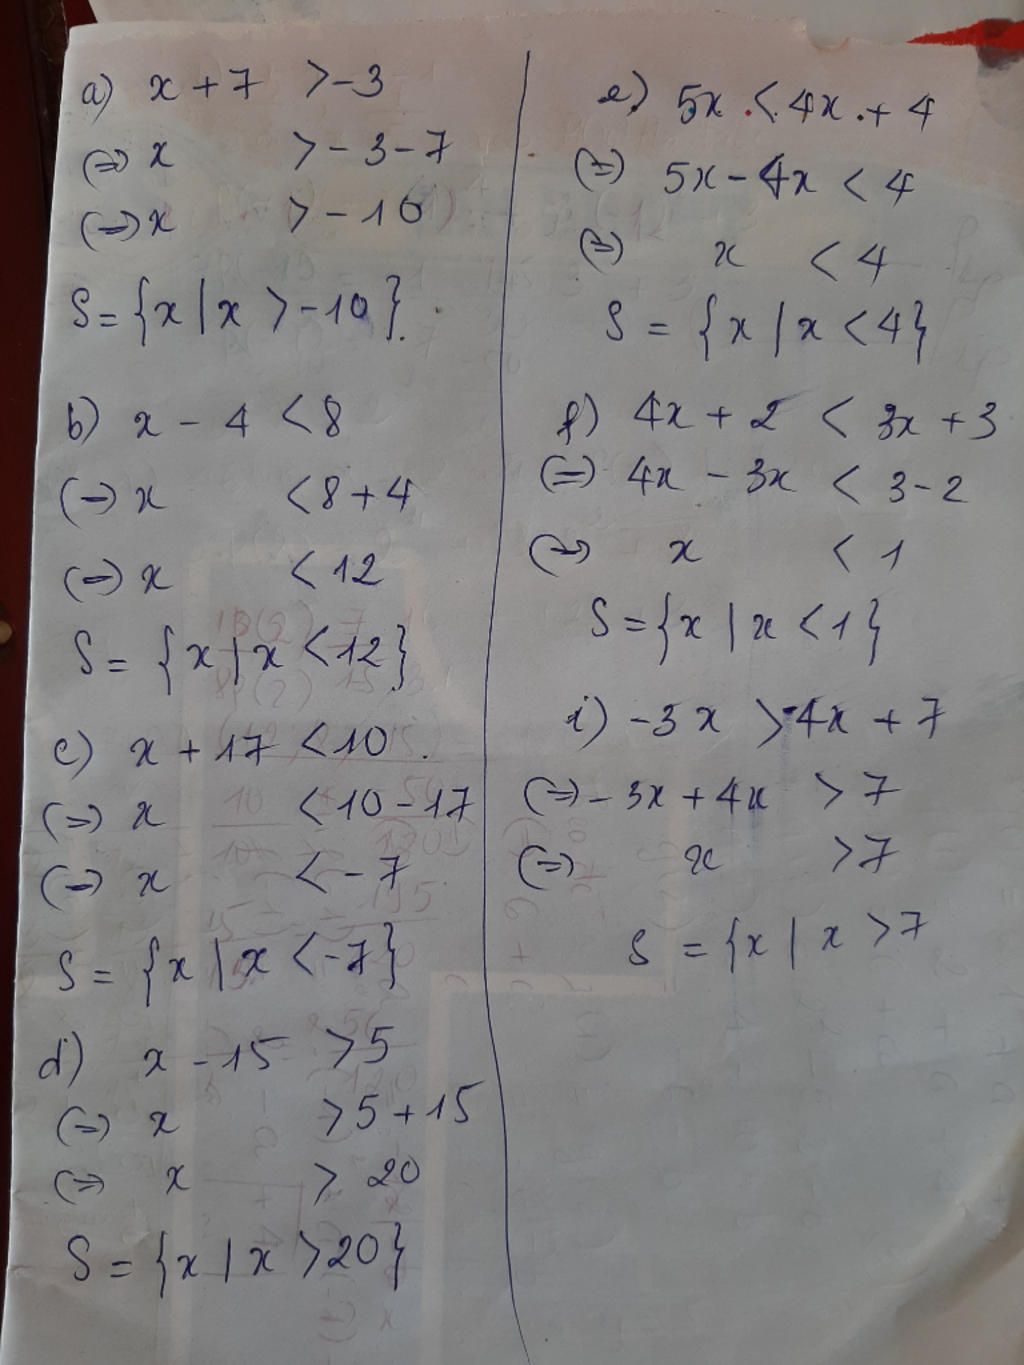 a) x + 7 > -3
<=> x > -3 - 7
<=> x > -10
S = {x | x > -10}.
b) x - 4 < 8
<=> x < 8 + 4
<=> x < 12
S = {x | x < 12}
c) x + 17 < 10.
<=> x < 10 - 17
<=> x < -7
S = {x | x < -7}
d) x - 15 > 5
<=> x > 5 + 15
<=> x > 20
S = {x | x > 20}
e) 5x < 4x + 4
<=> 5x - 4x < 4
<=> x < 4
S = {x | x < 4}
f) 4x + 2 < 3x + 3
<=> 4x - 3x < 3 - 2
<=> x < 1
S = {x | x < 1}
i) -3x > -4x + 7
<=> -3x + 4x > 7
<=> x > 7
S = {x | x > 7